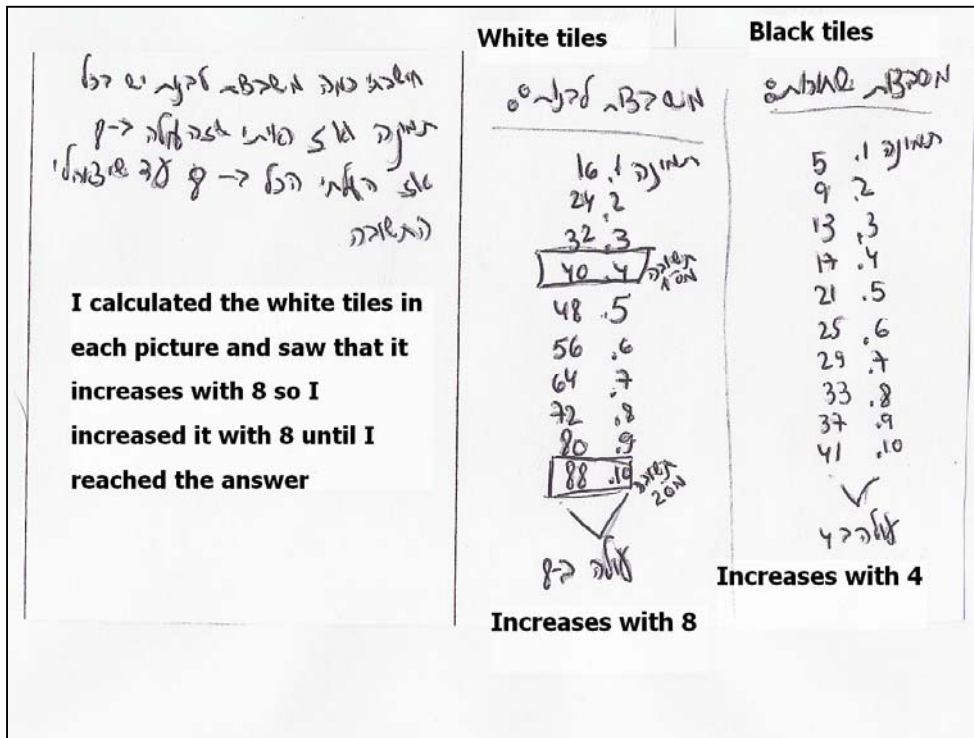 White tiles
Black tiles
חישבתי כמה משבצות לבנות יש בכל
תמונה ואז ראיתי שזה עולה ב-8
אז העלתי הכל ב-8 עד שיצא לי
התשובה
I calculated the white tiles in
each picture and saw that it
increases with 8 so I
increased it with 8 until I
reached the answer
משבצות לבנות:
תמונה 1. 16
2. 24
3. 32
4. 40
תשובה
מס 1
5. 48
6. 56
7. 64
8. 72
9. 80
10. 88
תשובה
מס 2
עולה ב-8
Increases with 8
משבצות שחורות:
תמונה 1. 5
2. 9
3. 13
4. 17
5. 21
6. 25
7. 29
8. 33
9. 37
10. 41
עולה ב 4
Increases with 4